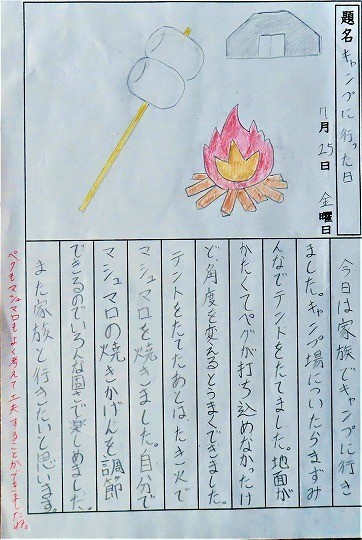 題名 キャンプに行った日
7月25日 金曜日
今日は家族でキャンプに行き
ました。キャンプ場についたらまずみ
んなでテントをたてました。地面が
かたくてペグが打ち込めなかったけ
ど、角度を変えるとうまくできました。
テントをたてたあとは、たき火で
マシュマロを焼きました。自分で
マシュマロの焼きかげんを調節
できるのでいろんな固さで楽しめました。
また家族と行きたいと思います。
ペグもマシュマロもよく考えて工夫することができましたね。